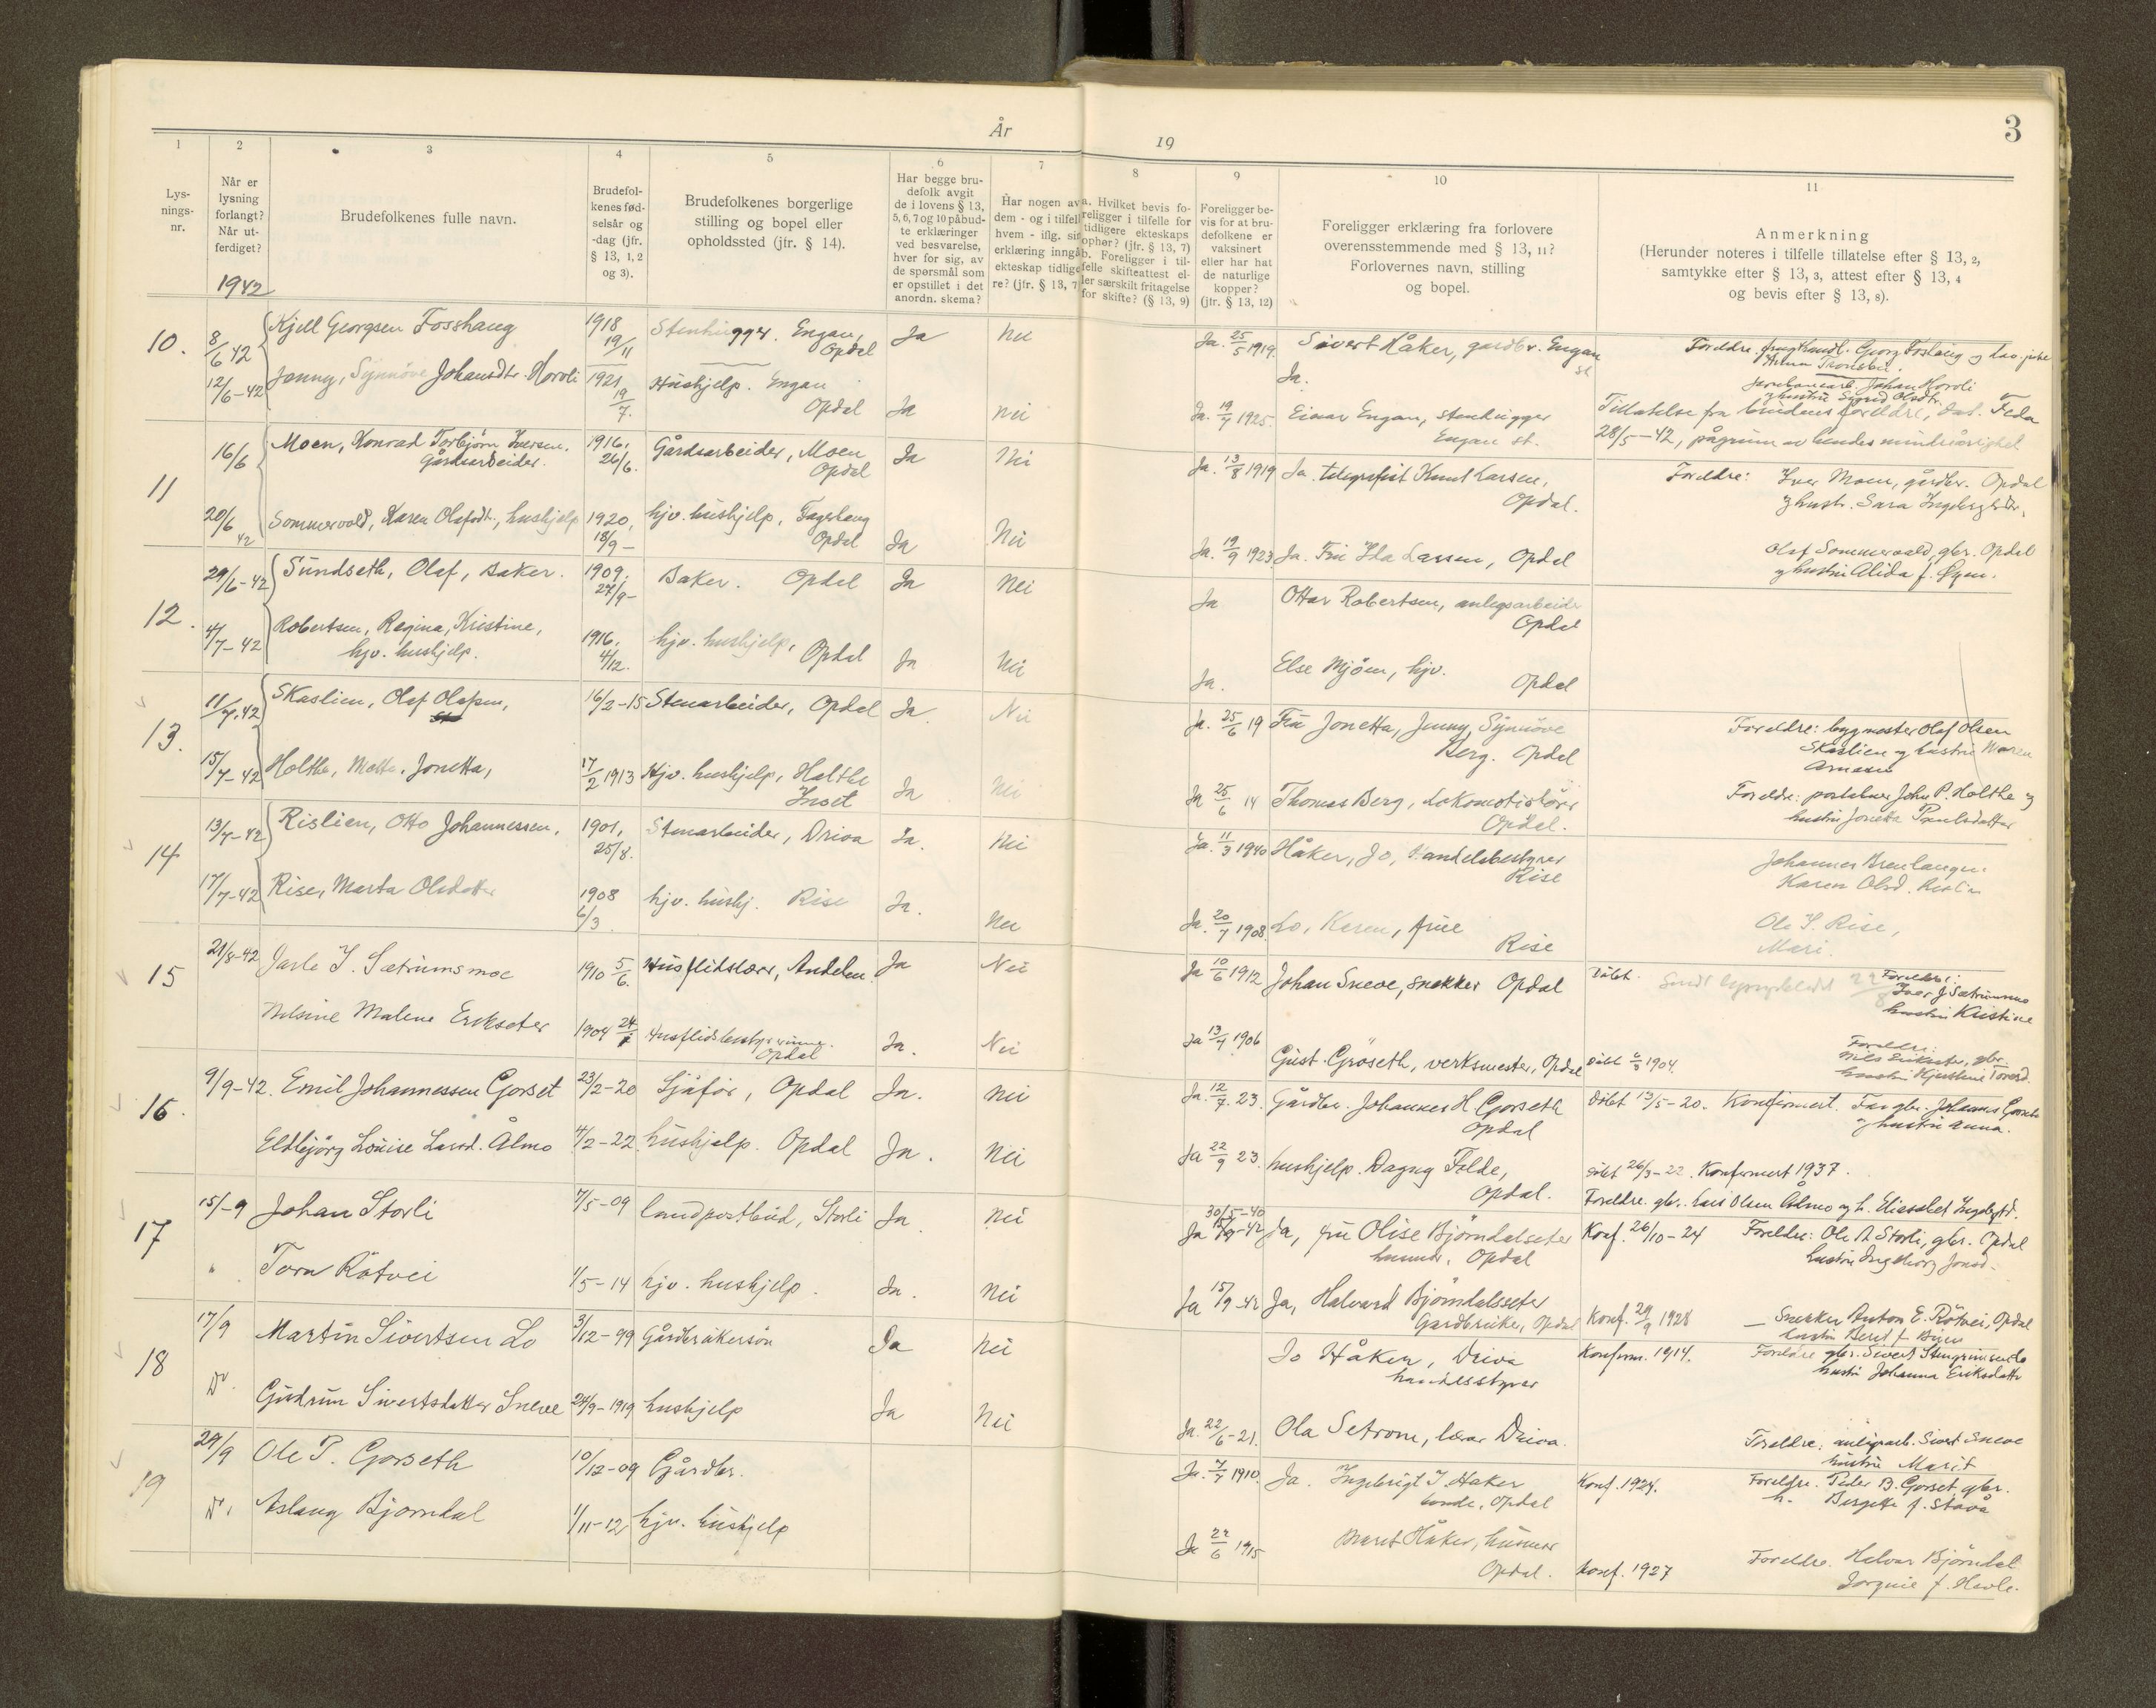 År
19
3
1
2
3
4
5
6
7
8
9
10
11
Lys-
nings-
nr.
Når er
lysning
forlangt?
Når ut-
ferdiget?
1942
Brudefolkenes fulle navn.
Brudefol-
kenes fød-
selsår og
-dag (jfr.
§ 13, 1, 2
og 3).
Brudefolkenes borgerlige
stilling og bopel eller
opholdssted (jfr. § 14).
Har begge bru-
defolk avgit
de i lovens § 13,
5, 6, 7 og 10 påbud-
te erklæringer
ved besvarelse,
hver for sig, av
de spørsmål som
er opstillet i det
anordn. skema?
Har nogen av
dem - og i tilfell
hvem - iflg. sin
erklæring inngå
ekteskap tidlige
re? (jfr. § 13, 7
a. Hvilket bevis fo-
religger i tilfelle for
tidligere ekteskaps
ophør? (jfr. § 13, 7)
b. Foreligger i til-
felle skifteattest el-
ler særskilt fritagelse
for skifte? (§ 13, 9)
Foreligger be-
vis for at bru-
defolkene er
vaksinert
eller har hat
de naturlige
kopper?
(jfr. § 13, 12)
Foreligger erklæring fra forlovere
overensstemmende med § 13, 11?
Forlovernes navn, stilling
og bopel.
Anmerkning
(Herunder noteres i tilfelle tillatelse efter § 13, 2,
samtykke efter § 13, 3, attest efter § 13, 4
og bevis efter § 13, 8).
10. 8/6 42 Kjell Georgsen Fosshaug 1918 19/11 Stenhugger. Engan, Opdal Ja Nei Ja. 25/5 1919. Sivert Håker, gardbr. Engan st
Foreldre Georg Fosshaug
12/6-42 Jenny, Synnöve Johansdtr. Horoli 1921 19/7. Hushjelp. Engan Opdal Ja Nei Ja. 19/7 1925. Ja. Einar Engan, stenhugger Engan st.
Johan Horoli
Tillatelse fra brudens foreldre, dat. Feda
28/5-42, pågrunn av hendes mindreårighet
11 16/6 Moen, Konrad Torbjørn Iversen. Gårdsarbeider. 1916. 26/6. Gårdsarbeider, Moen Opdal Ja Nei Ja. 13/8 1919 Ja. telegrafist Knut Larsen, Opdal.
Foreldre: Iver Moen, gårdbr. Opdal
og hustr. Sara
20/6 42 Sommervold, Karen Olafsdt., hushjelp 1920, 18/9- hjv. hushjelp, Fagerhaug Opdal Ja Nei Ja. 19/9 1923 Ja. Fru Ida Larsen, Opdal
Olaf Sommervold, gbr. Opdal
og hustru Alida f. Øyen.
12. 29/6-42 Sundseth, Olaf, Baker. 1909. 27/9- Baker. Opdal Ja Nei Ja Ottar Robertsen, anlegsarbeider Opdal
4/7-42 Robertsen, Regina, Kristine, hjv. hushjelp. 1916. 4/12. hjv. hushjelp, Opdal Ja Nei Ja. Else Mjöen, hjv. Opdal
13. 11/7.42 Skaslien, Olaf Olafsen, 16/2-15 Stenarbeider, Opdal Ja. Nei Ja. 25/6 19 Fru Jonetta, Jenny, Synnöve Berg. Opdal
Foreldre: byggmester Olaf Olsen
Skaslien og hustru Maren
15/7-42 Holthe, Jonetta, 17/2 1913 Hjv. hushjelp, Holthe Inset Ja Nei Ja 25/6 14 Thomas Berg, Lokomotivförer Opdal.
Foreldre: John P. Holthe og
hustru Jonetta Paulsdatter
14 13/7-42 Rislien, Otto Johannessen, 1901, 25/8. Stenarbeider, Driva Ja. Nei Ja. 11/3 1940 Håker, Jo, Handelsbestyrer Rise
Johannes
Karen Olsd. Rislien
17/7-42 Rise, Marta Olsdatter 1908 6/3 hjv. hushj. Rise Ja. Nei Ja. 20/7 1908. Lo, Karen, frue Rise
Ole S. Rise,
Mari.
15 21/8-42 Jarle I. Sætrumsmoe 1910 5/6. Husflidslærer, Ja Nei Ja 10/6 1912 Johan Sneve, snekker Opdal Döbt
Foreldre:
Iver J Sætrumsmo
hustru Kristine
Nelsine Malene Erikseter 1904 24/ Husflidsbestyrerinne. Opdal Ja. Nei Ja 13/4 1906 Gust. Gröseth, verksmester, Opdal Döbt 1904.
Foreldre:
Nils Erikseter, gbr.
16. 9/9-42. Emil Johannessen Gorset 23/2-20 Sjåför, Opdal Ja. Nei Ja. 12/7. 23. Gårdbr. Johannes H Gorseth Opdal
Döbt 13/5-20. Konfirmert. Far gbr. Johannes Gorseth
og hustru Anna.
Eldbjörg Louise Larsd. Ålmo 4/2-22 hushjelp. Opdal Ja. Nei Ja 22/9 23. hushjelp. Dagny Folde, Opdal.
Döbt 26/3-22. Konfirmert 1937.
Foreldre. gbr. Lars Olsen Ålmo og h. Elisabet
17 15/-9 Johan Storli 7/5-09 landpostbud, Storli Ja Nei 30/5-40 Ja 15/9-42 Ja, fru Olise Björndalseter husmor. Opdal
Konf. 26/10-24 Foreldre: Ole A Storli, gbr. Opdal
hustru Ingeborg Jonsd.
" Tora Rötvei 1/5-14 hjv. hushjelp. Ja. Nei Ja 15/9-42 Ja, Halvard Björndalsseter Gardbruker, Opdal
Konf. 29/9 1928 — Snekker Anton E. Rötvei, Opdal
hustru Berit f.
18 17/9 Martin Sivertsen Lo 3/12-99 Gårdbrukersön Ja Nei Jo Håker, Driva
Konfirm. 1914. Foreldre gbr. Sivert
hustru Johanna Eriksdatter
Do. Gudrun Sivertsdatter Sneve 24/9-1919 hushjelp Ja Nei Ja. 22/6-21. Ola Setrom, lærar Driva.
Foreldre: anligsarb. Sivert Sneve
hustru Marit
19 29/9 Ole P. Gorseth 10/12-09 Gårdbr. Ja. 7/7 1910. Ja. Ingebrigt J Haker bonde, Opdal
Konf. 1924. Foreldre. Peder B. Gorset, gbr.
h. Bergitte f. Stavå
Do. Aslaug Bjorndal 1/11-12 hjv. hushjelp Ja 22/6 1915 Marit Håker, husmor Opdal.
Konf. 1927 Foreldre. Halvar Björndal